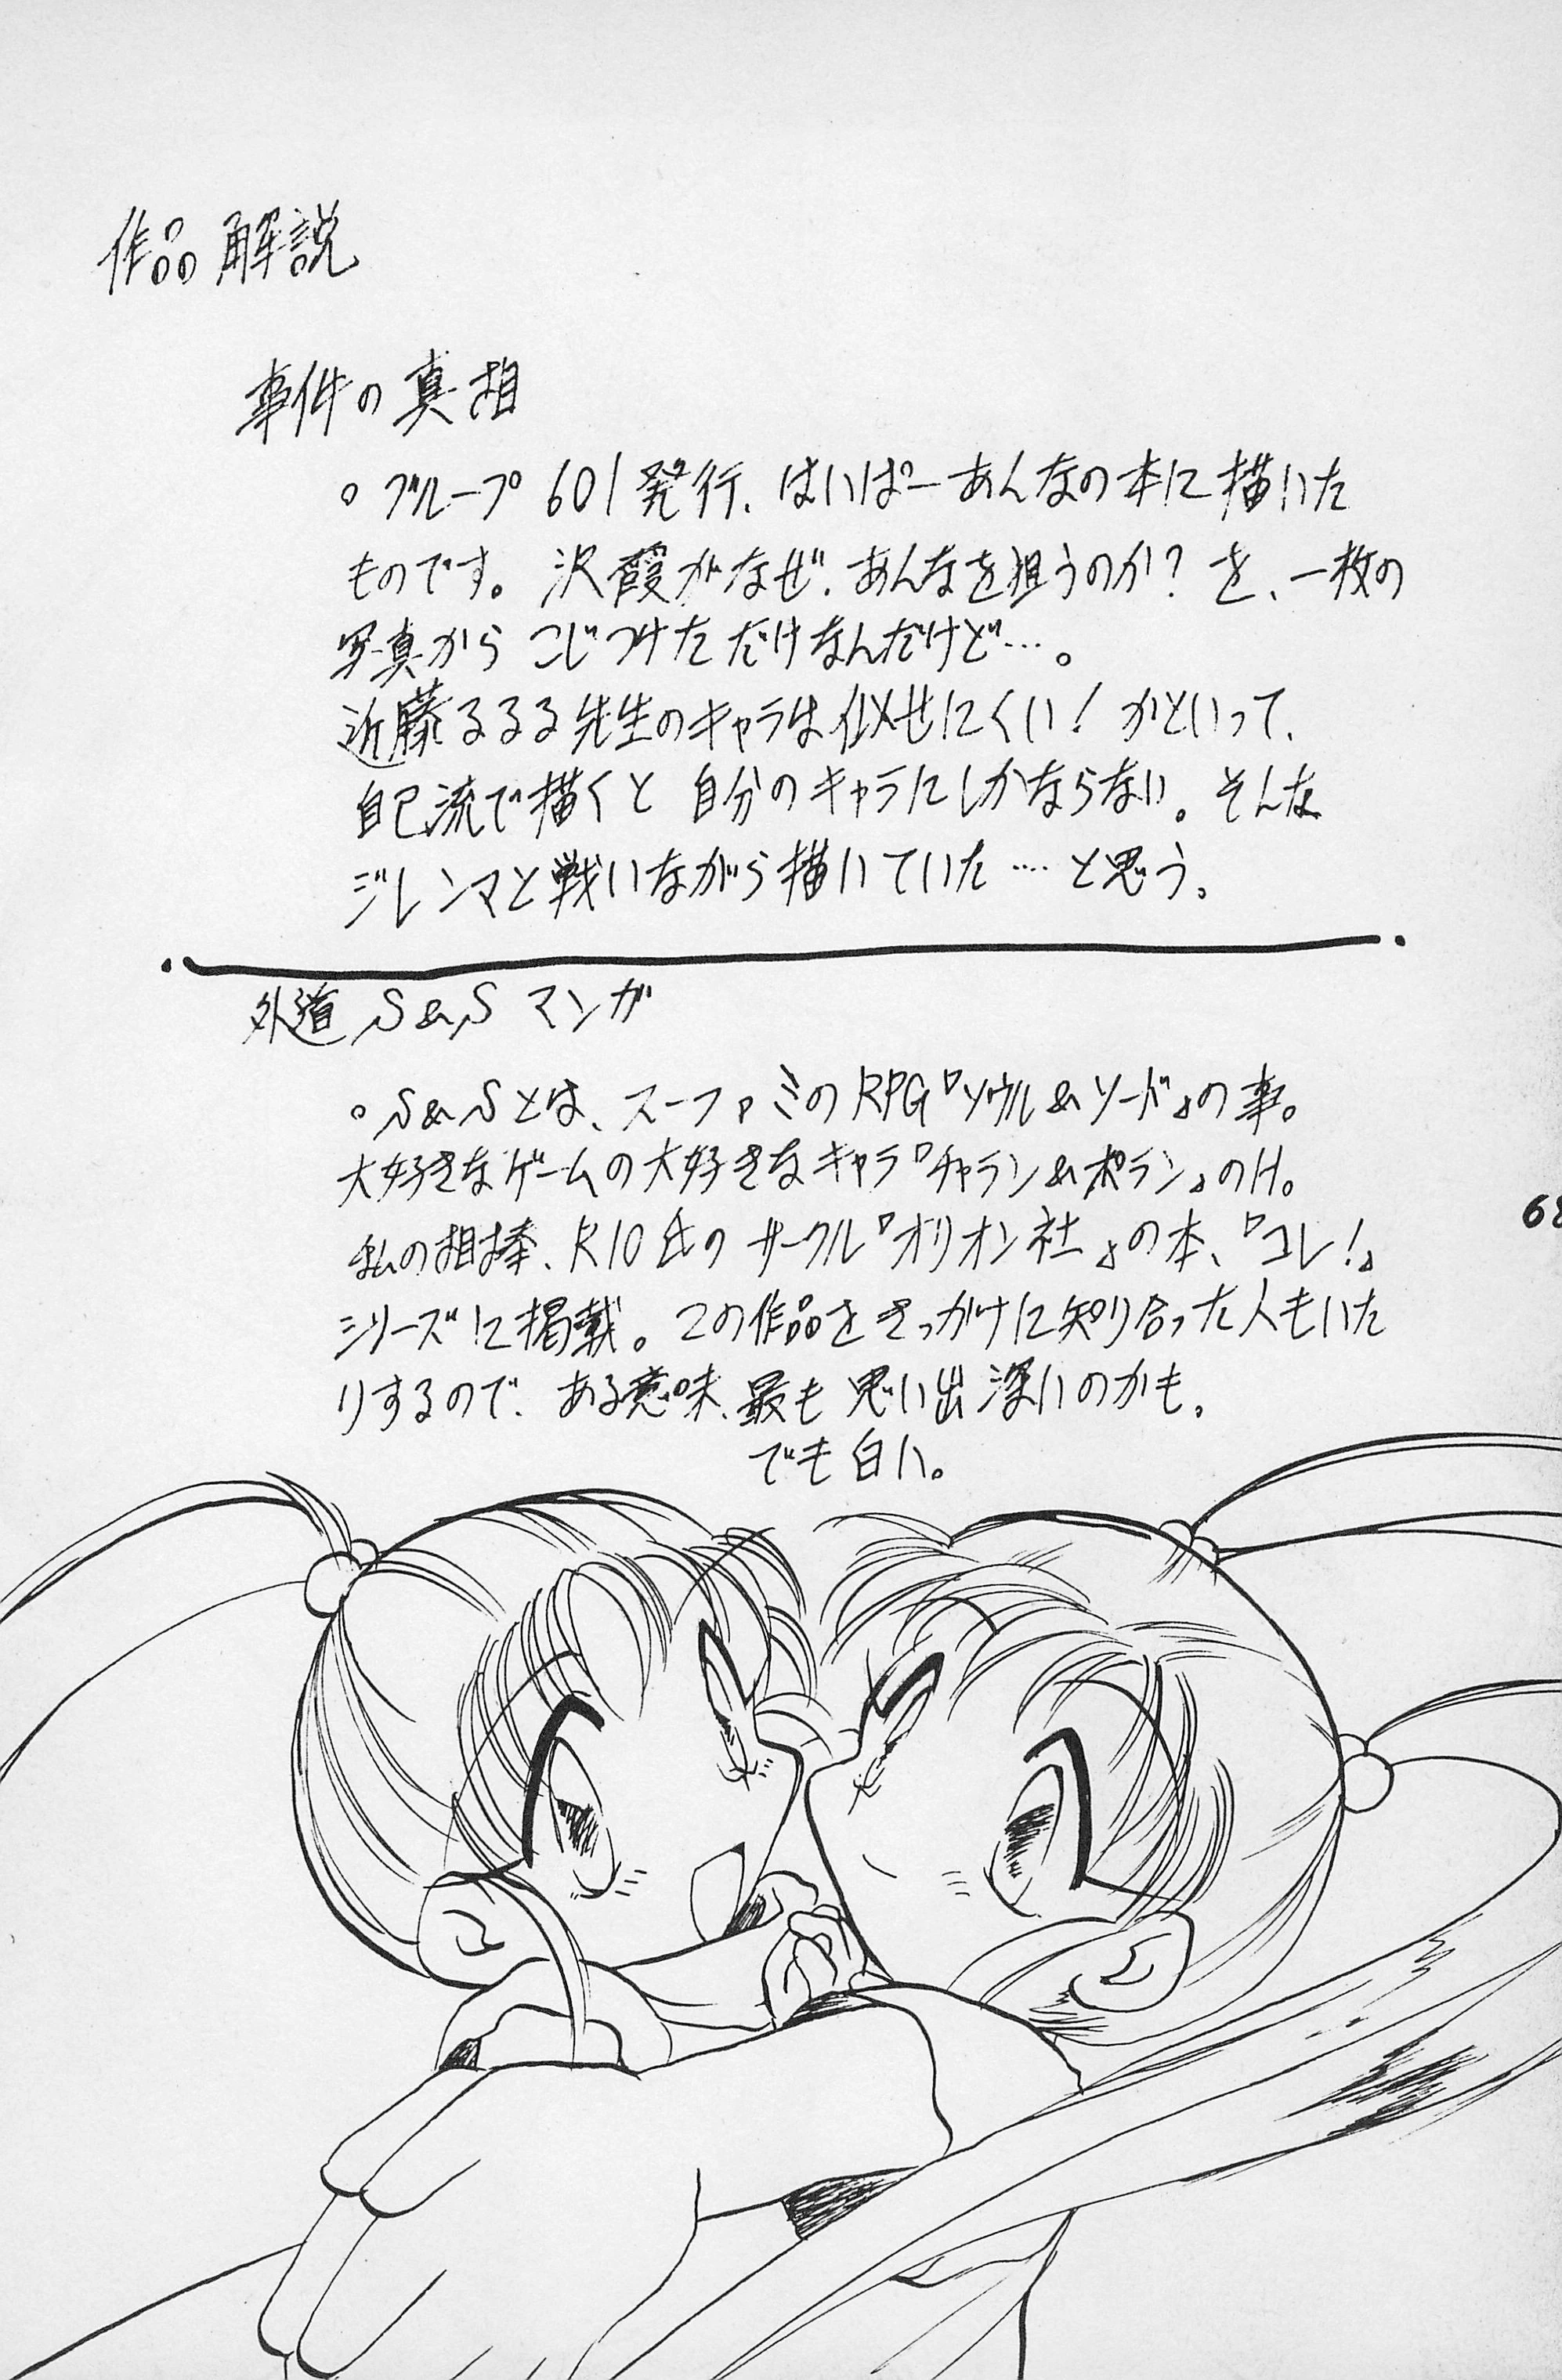 作品解説
事件の真相
。グループ601発行、はいぱーあんなの本に描いた
ものです。沢霞がなぜ、あんなを狙うのか？を、一枚の
写真からこじつけただけなんだけど…。
近藤るるる先生のキャラは似せにくい！かといって、
自己流で描くと自分のキャラにしかならない。そんな
ジレンマと戦いながら描いていた…と思う。
外道S&Sマンガ
。S&Sとは、スーファミのRPG『ソウル&ソード』の事。
大好きなゲームの大好きなキャラ『チャラン&ポラン』のH。
私の相棒、R10氏のサークル『オリオン社』の本、『コレ！』
シリーズに掲載。この作品をきっかけに知り合った人もいた
りするので、ある意味、最も思い出深いのかも。
でも白い。